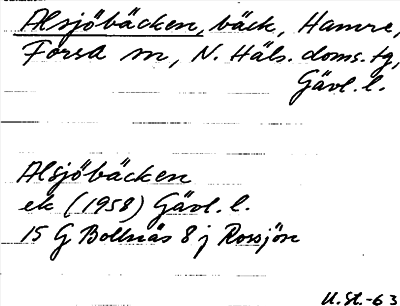 Alsjöbäcken, bäck, Hamre,
Forsa sn, N. Häls. doms. tg,
Gävl. l.
Alsjöbäcken
ek (1958) Gävl. l.
15 G Bollnäs 8 j Rossjön
U. St. -63